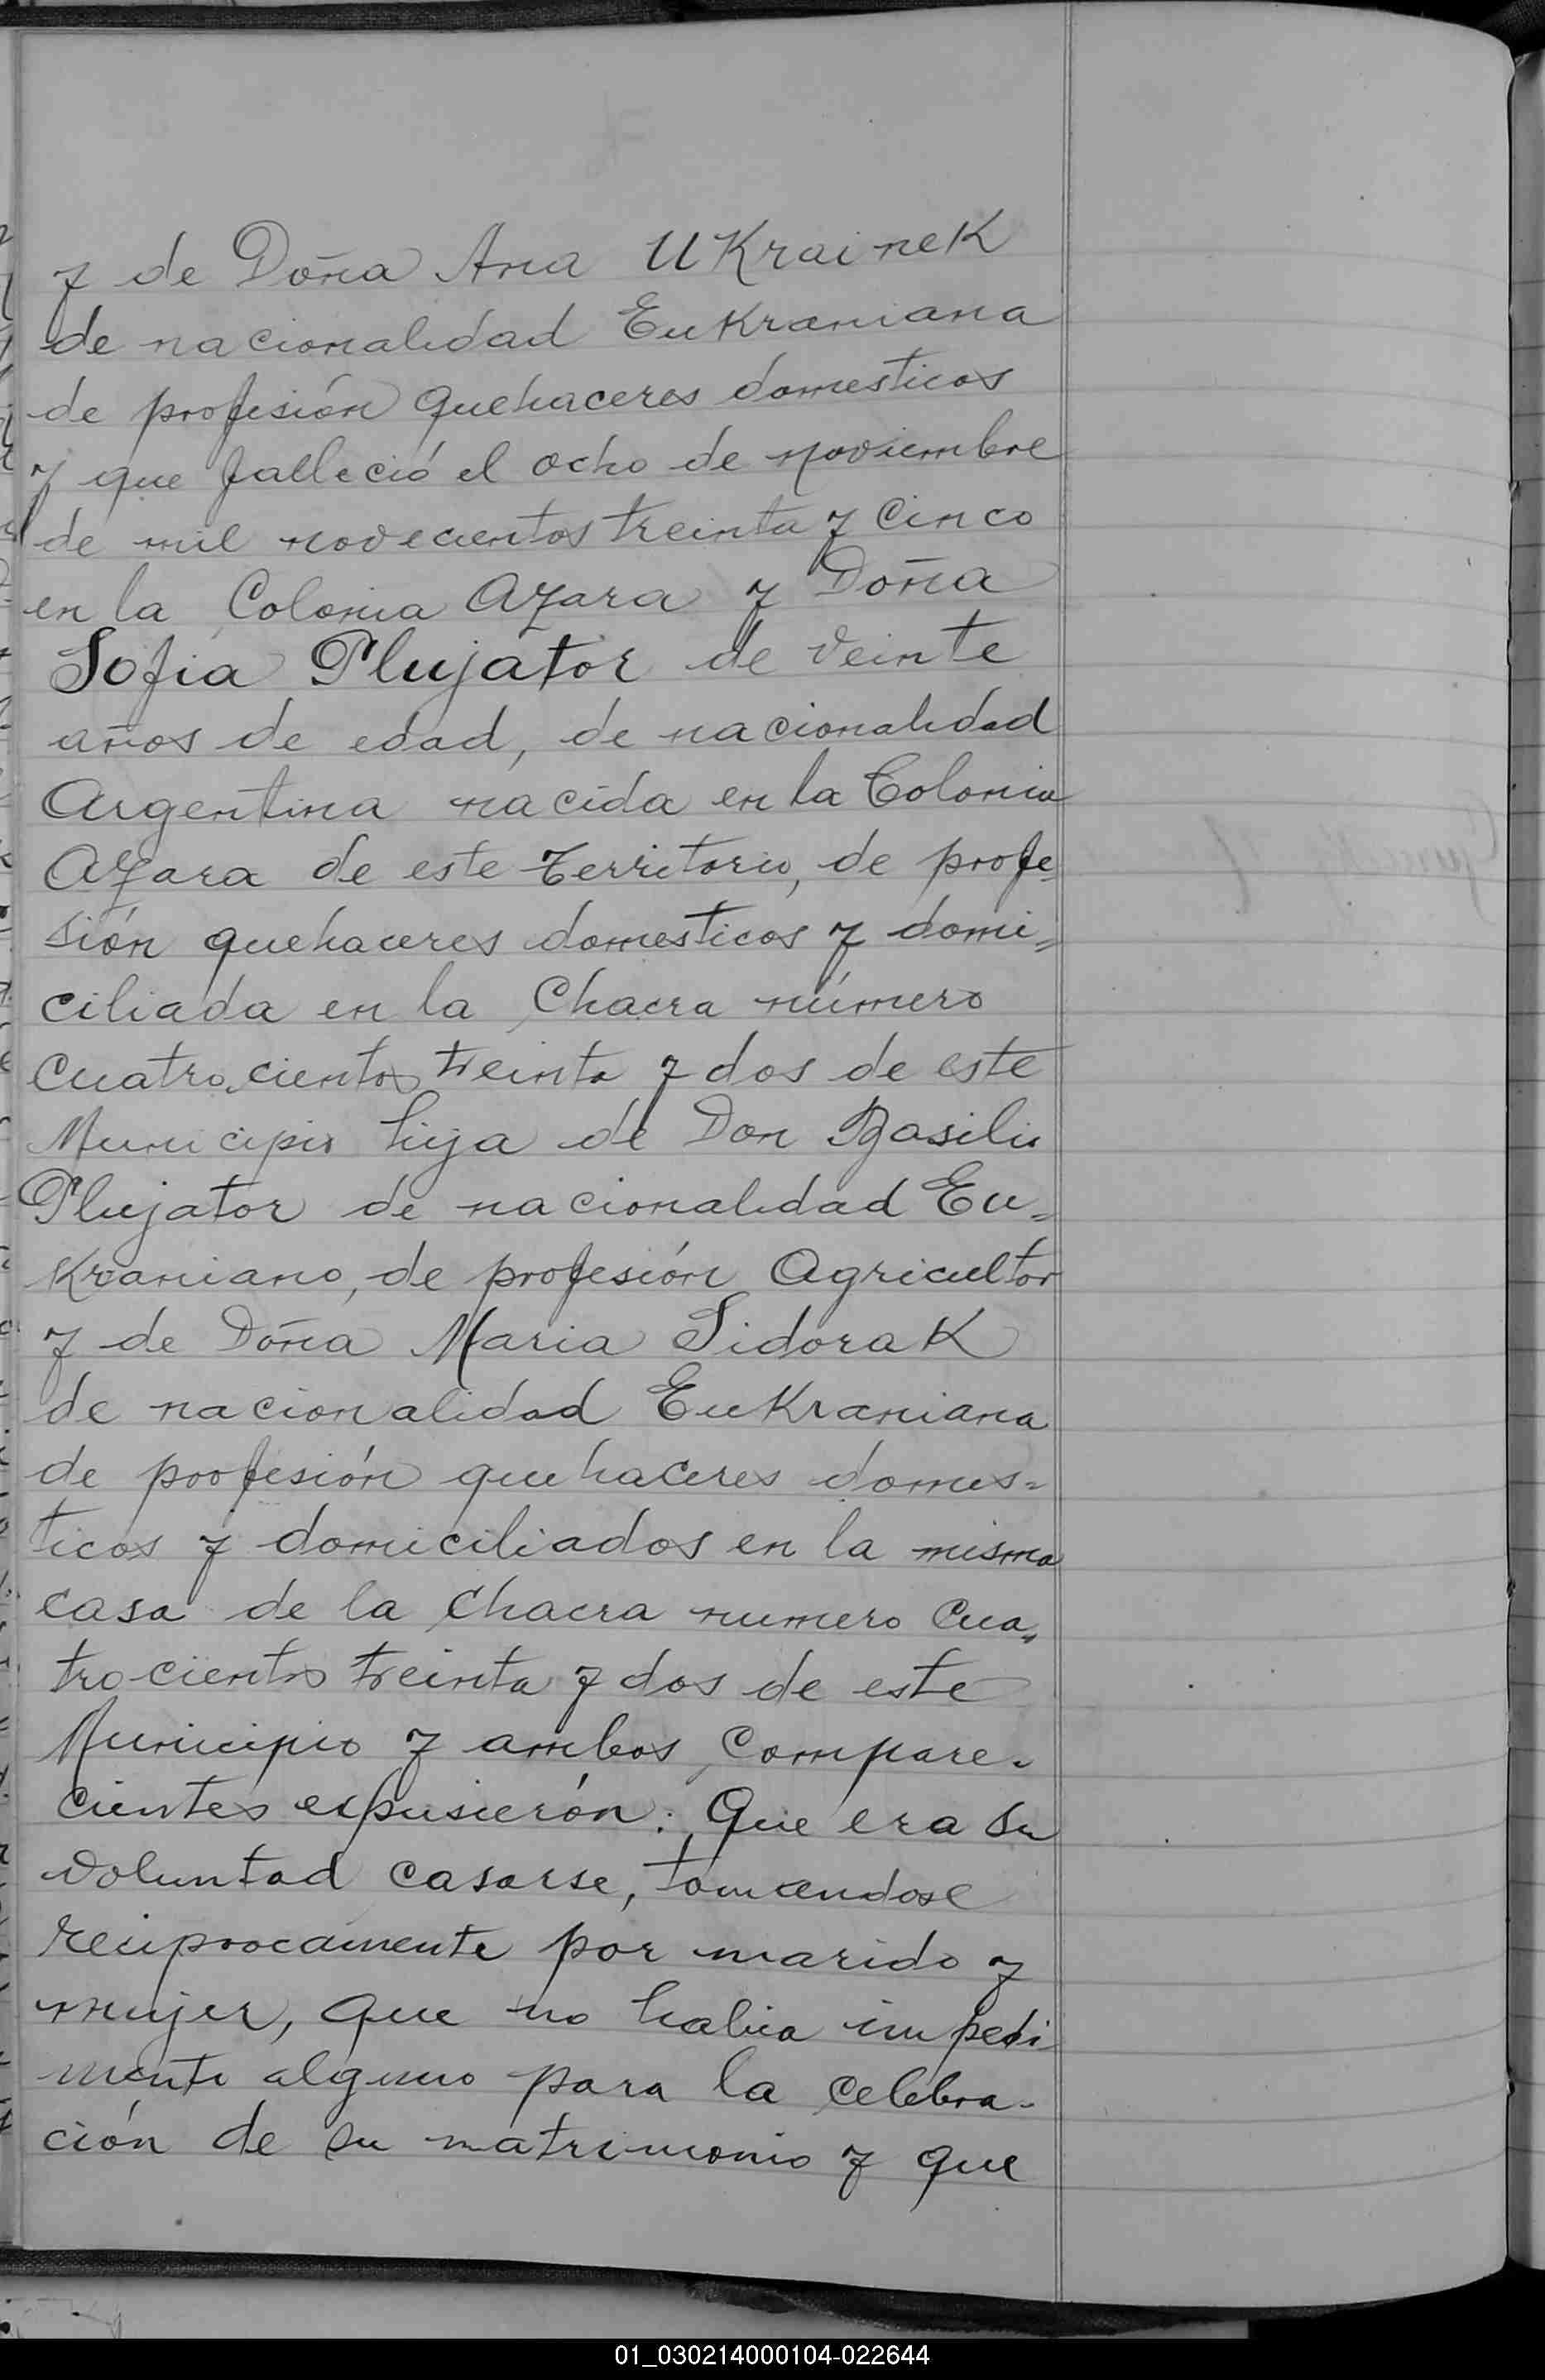 y de Doña Ana UKraineK
de nacionalidad EuKraniana
de profesión quehaceres domesticos
y que falleció el ocho de noviembre
de mil novecientos treinta y cinco
en la Colonia Azara y Doña
Sofia Plujator de veinte
años de edad, de nacionalidad
Argentina nacida en la Colonia
Azara de este territorio, de profe-
sión quehaceres domesticos y domi=
ciliada en la Chacra número
cuatrocientos treinta y dos de este
Municipio hija de Don Basilio
Plujator de nacionalidad Eu=
Kraniano, de profesión Agricultor
y de Doña Maria SidoraK
de nacionalidad EuKraniana
de profesión quehaceres domes=
ticos y domiciliados en la misma
casa de la Chacra numero Cua=
trocientos treinta y dos de este
Municipio y ambos compare-
cientes expusierón: Que era su
voluntad casarse, tomandose
reciprocamente por marido y
mujer, que no habia impedi
mento alguno para la celebra-
ción de su matrimonio y que
01_030214000104-022644